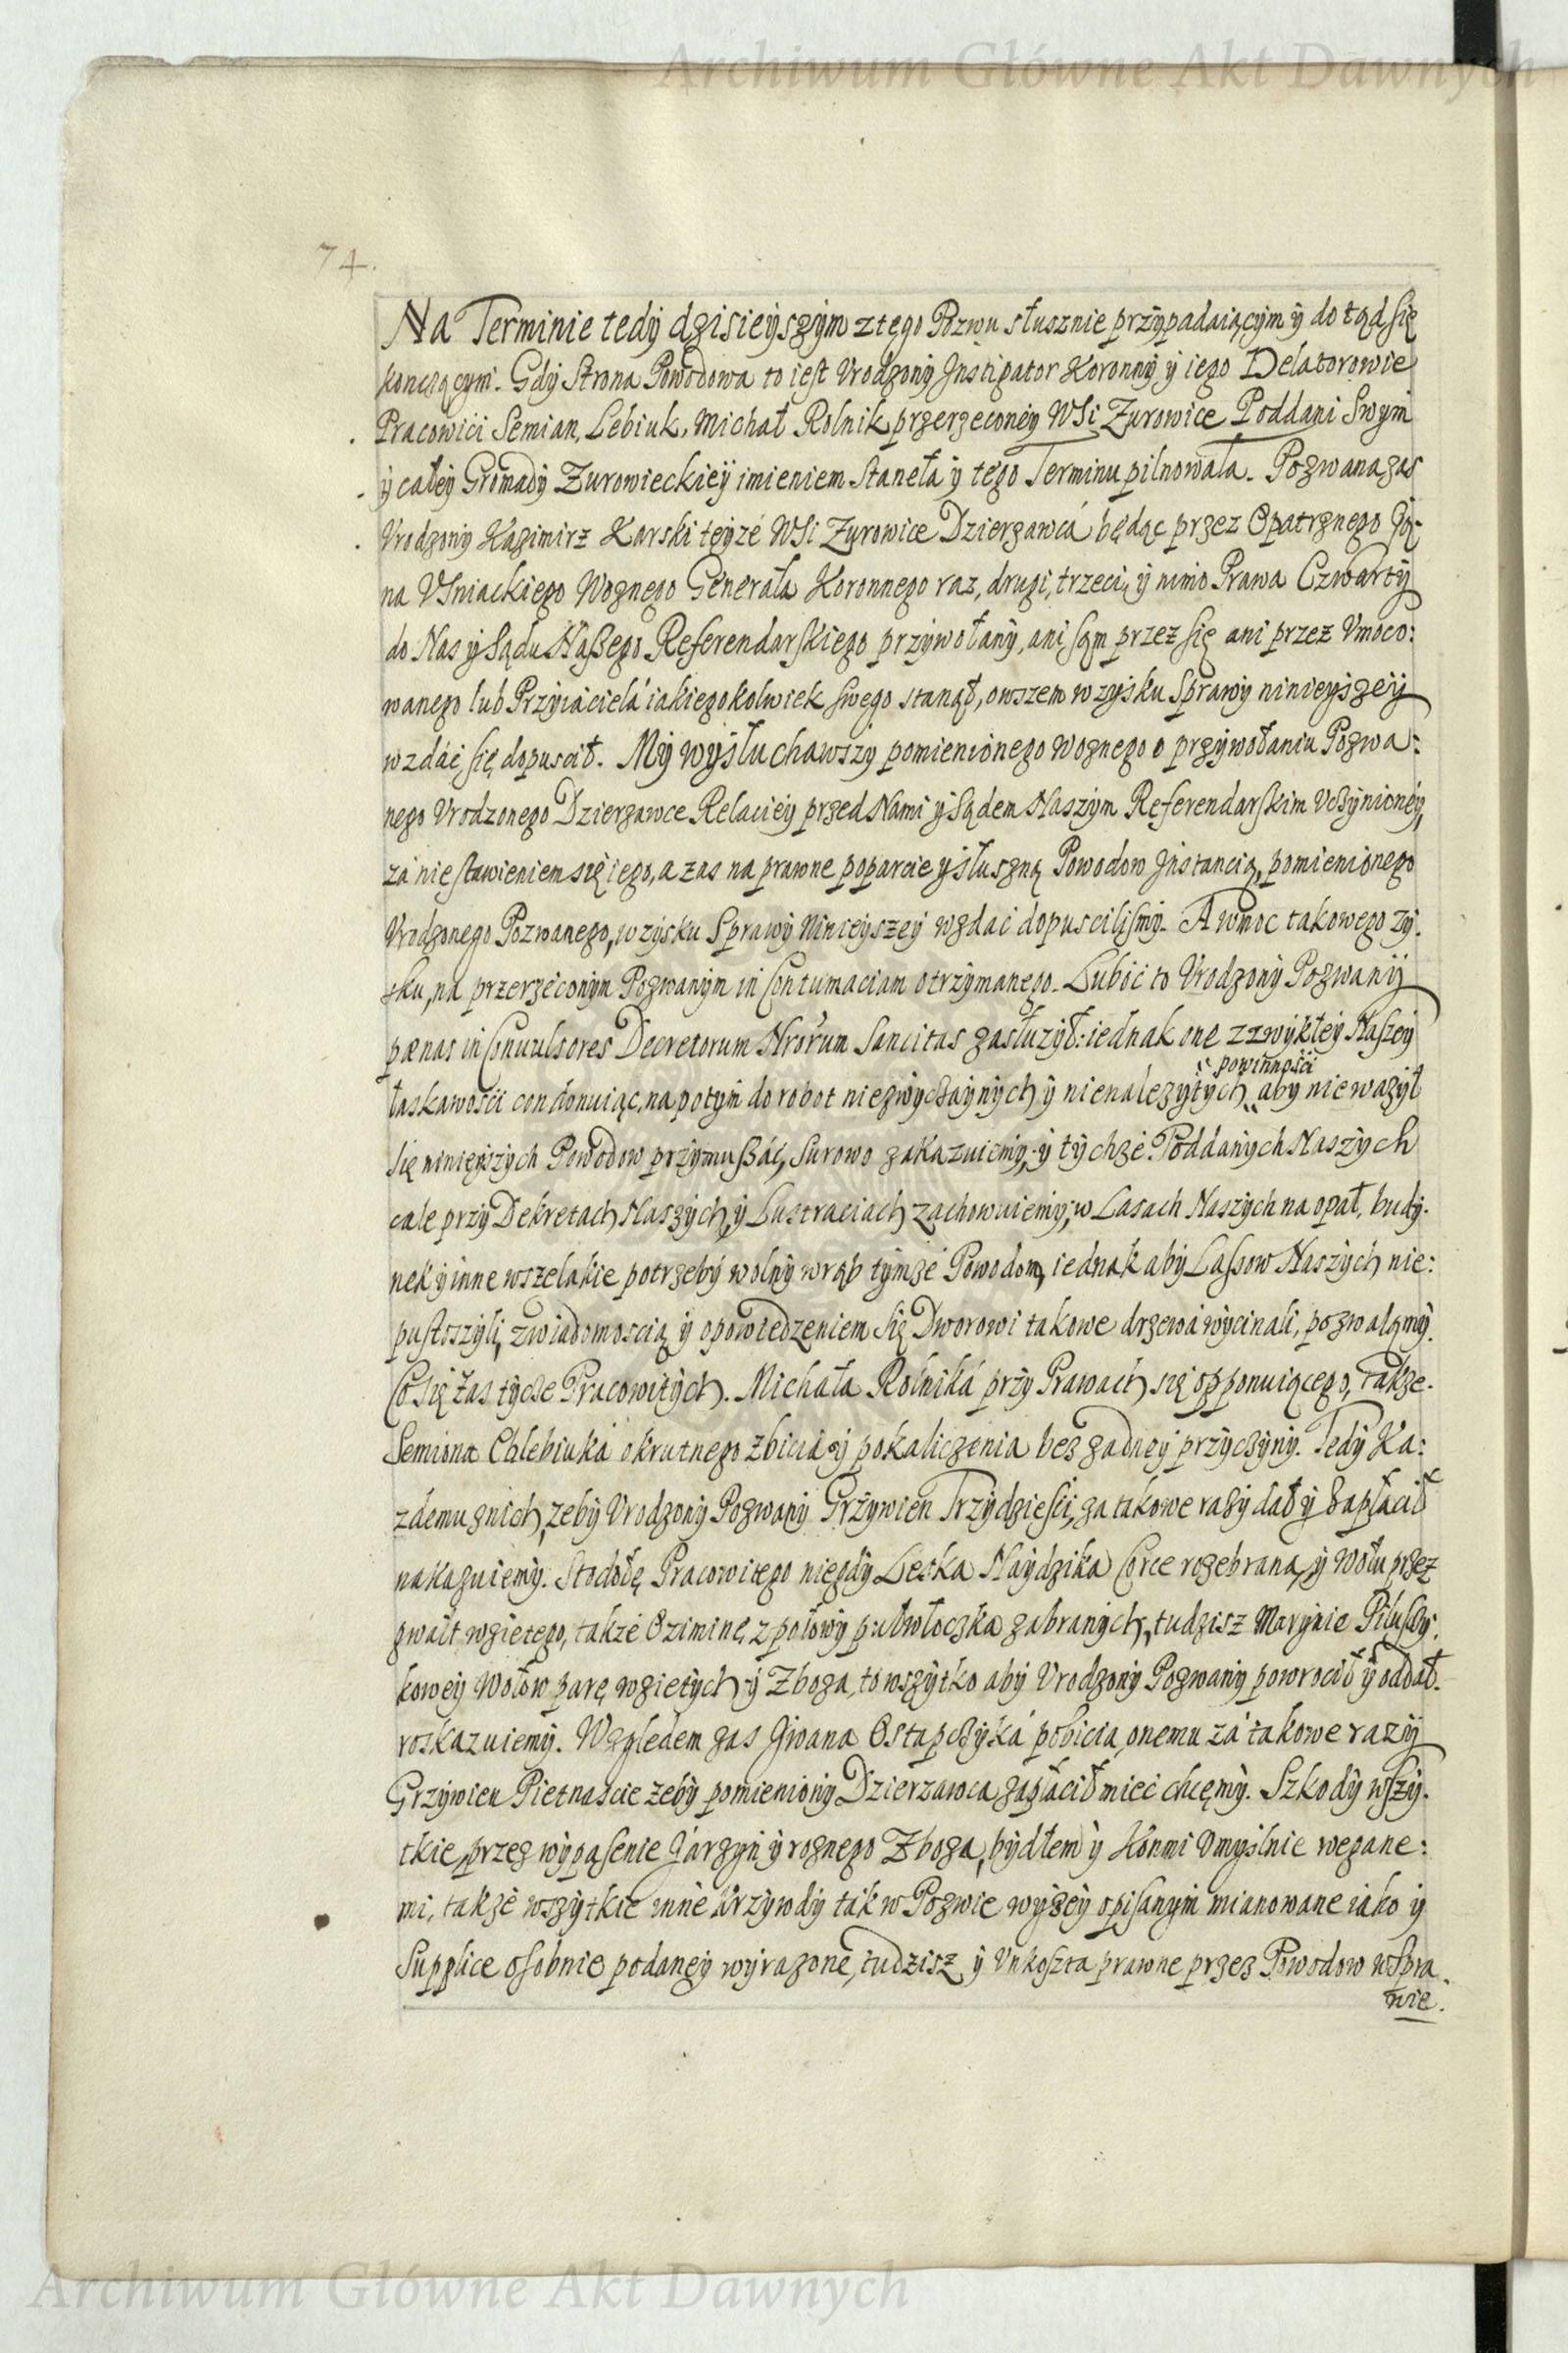 Archiwum Główne Akt Dawnych
74.
Na Terminie tedÿ dzisieÿszÿm z tego Pozwu słusznie przÿpadaiącÿm ÿ do tąd się
konczącÿm. Gdÿ Strona Powodowa to iest Vrodzonÿ Jnstigator Koronnÿ ÿ iego Delatorowie
Pracowići Semian, Lebiuk, Michał Rolnik przerzeconeÿ WSi Zurowice Poddani Swÿm
ÿ całeÿ Gromadÿ Zurowieckieÿ imieniem staneła ÿ tego Terminu pilnowała. Pozwana zas
Vrodzonÿ Kazimirz Karski teÿze WSi Zurowice Dzierzawcá będąc przez Opatrznego Ja-
na VSniackiego Woznego Generała Koronnego raz, drugi, trzeci, ÿ mimo Prawa Czwartÿ
do Nas ÿ Sądu Naßego Referendarskiego przÿwołanÿ, ani sąm przez się ani przez Vmoco:
wanego lub Przÿiacielá iakiegokolwiek swego stanął, owszem w zÿsku Sprawÿ ninieÿszeÿ
wzdać się dopuscił. Mÿ wÿsłuchawszÿ pomienionego woznego o przÿwołaniu Pozwa:
nego Vrodzonego Dzierzawce Relacieÿ przed Nami ÿ Sądem Naszÿm Referendarskim Vczÿnioneÿ,
zá niestawieniem się iego, a zas na prawne poparcie ÿ słuszną Powodow Jnstancią, pomienionego
Vrodzonego Pozwanego, w zÿsku Sprawÿ Ninieÿszeÿ wzdać dopuscilismÿ. A wmoc takowego zÿ-
sku, na przerzeconÿm Pozwanÿm in Contumaciam otrzÿmanego. Lubić to Vrodzonÿ Pozwanÿ
pænas in Convulsores Decretorum Nrorum Sancitas zasłuzÿł: iednak one z zwÿkłeÿ Naszeÿ
powinności
łaskawości condonuiąc, na potÿm do robot niezwÿczaÿnÿch ÿ nienalezÿtÿch aby nie wazÿł
się ninieÿszÿch Powodow przÿmußać, surowo zakazuiemÿ, ÿ tÿchze Poddanÿch Naszÿch
cale przÿ Dekretach Naszÿch, ÿ Lustraciach zachowuiemÿ; w Lasach Naszÿch na opał, budÿ-
nek ÿ inne wszelakie potrzebÿ wolnÿ wrąb tÿmze Powodom, iednak abÿ Lasow Naszÿch nie:
pustoszÿli, zwiadomoscią ÿ opowiedzeniem się Dworowi takowe drzewá wÿcinali, pozwalamÿ.
Co się zas tÿcze Pracowitÿch. Michała Rolniká przÿ Prawach się opponuiącego, Takze.
Semiona Chlebiuká okrutnego zbiciá ÿ pokaliczenia bez zadneÿ przÿczÿnÿ. Tedÿ Ka:
zdemu znich, zebÿ Vrodzonÿ Pozwanÿ Grzÿwien Trzÿdziesci, za takowe razÿ dał ÿ zapłacił
nakazuiemÿ. Stodołę Pracowitego niegdÿ Leska Naÿdzika Corce rozebraną, ÿ wołu przez
gwałt wziętego, takze Oziminę z połowÿ pułwłoczka zabranÿch, tudzisz Marÿnie Piluszÿ:
koweÿ Wołow parę wzietÿch ÿ Zboza, to wszÿtko abÿ Vrodzonÿ Pozwanÿ powrocił ÿ oddał.
roskazuiemÿ. Wzgledem zas Jwana Ostapczÿká pobicia, onemu zá takowe razÿ
Grzÿwien Pietnascie zebÿ pomienionÿ Dzierzawca zapłacił mieć chcemÿ. Szkodÿ wszÿ-
tkie, przez wÿpasenie Jarzÿn ÿ roznego Zboza, bÿdłem ÿ Końmi Vmÿslnie wegane:
mi, takze wszÿtkie inne krzÿwdÿ ták w Pozwie wÿzeÿ opisanÿm mianowane iako ÿ
Supplice osobnie podaneÿ wÿrazone, tudzisz ÿ Vnkoszta prawne przez Powodow w spra-
wie.
Archiwum Główne Akt Dawnych